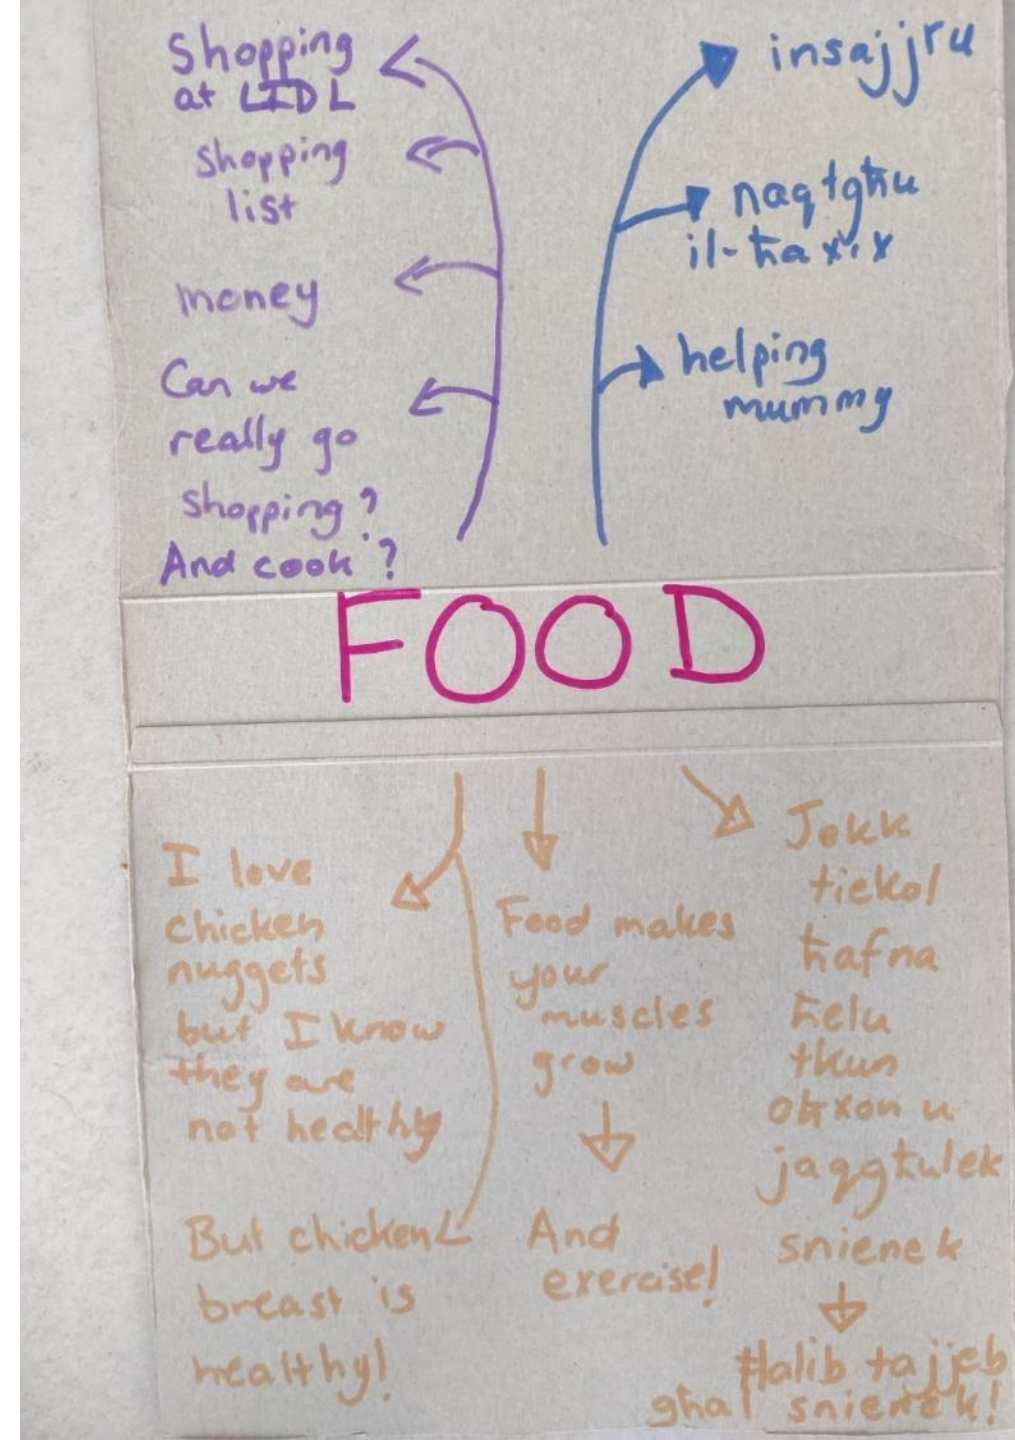 Shopping
at LIDL
shopping
list
money
Can we
really go
shopping?
And cook?
insajjru
naqtgħu
il-ħaxix
helping
mummy
FOOD
I love
chicken
nuggets
but I know
they are
not healthy
But chicken
breast is
healthy!
Food makes
your
muscles
grow
And
exercise!
Jekk
tiekol
ħafna
ħelu
tkun
oħxon u
jaqgħulek
snienek
Ħalib tajjeb
għal snienek!